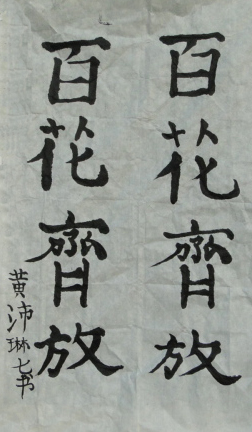 百花齊放
百花齊放
黄沛琳七书